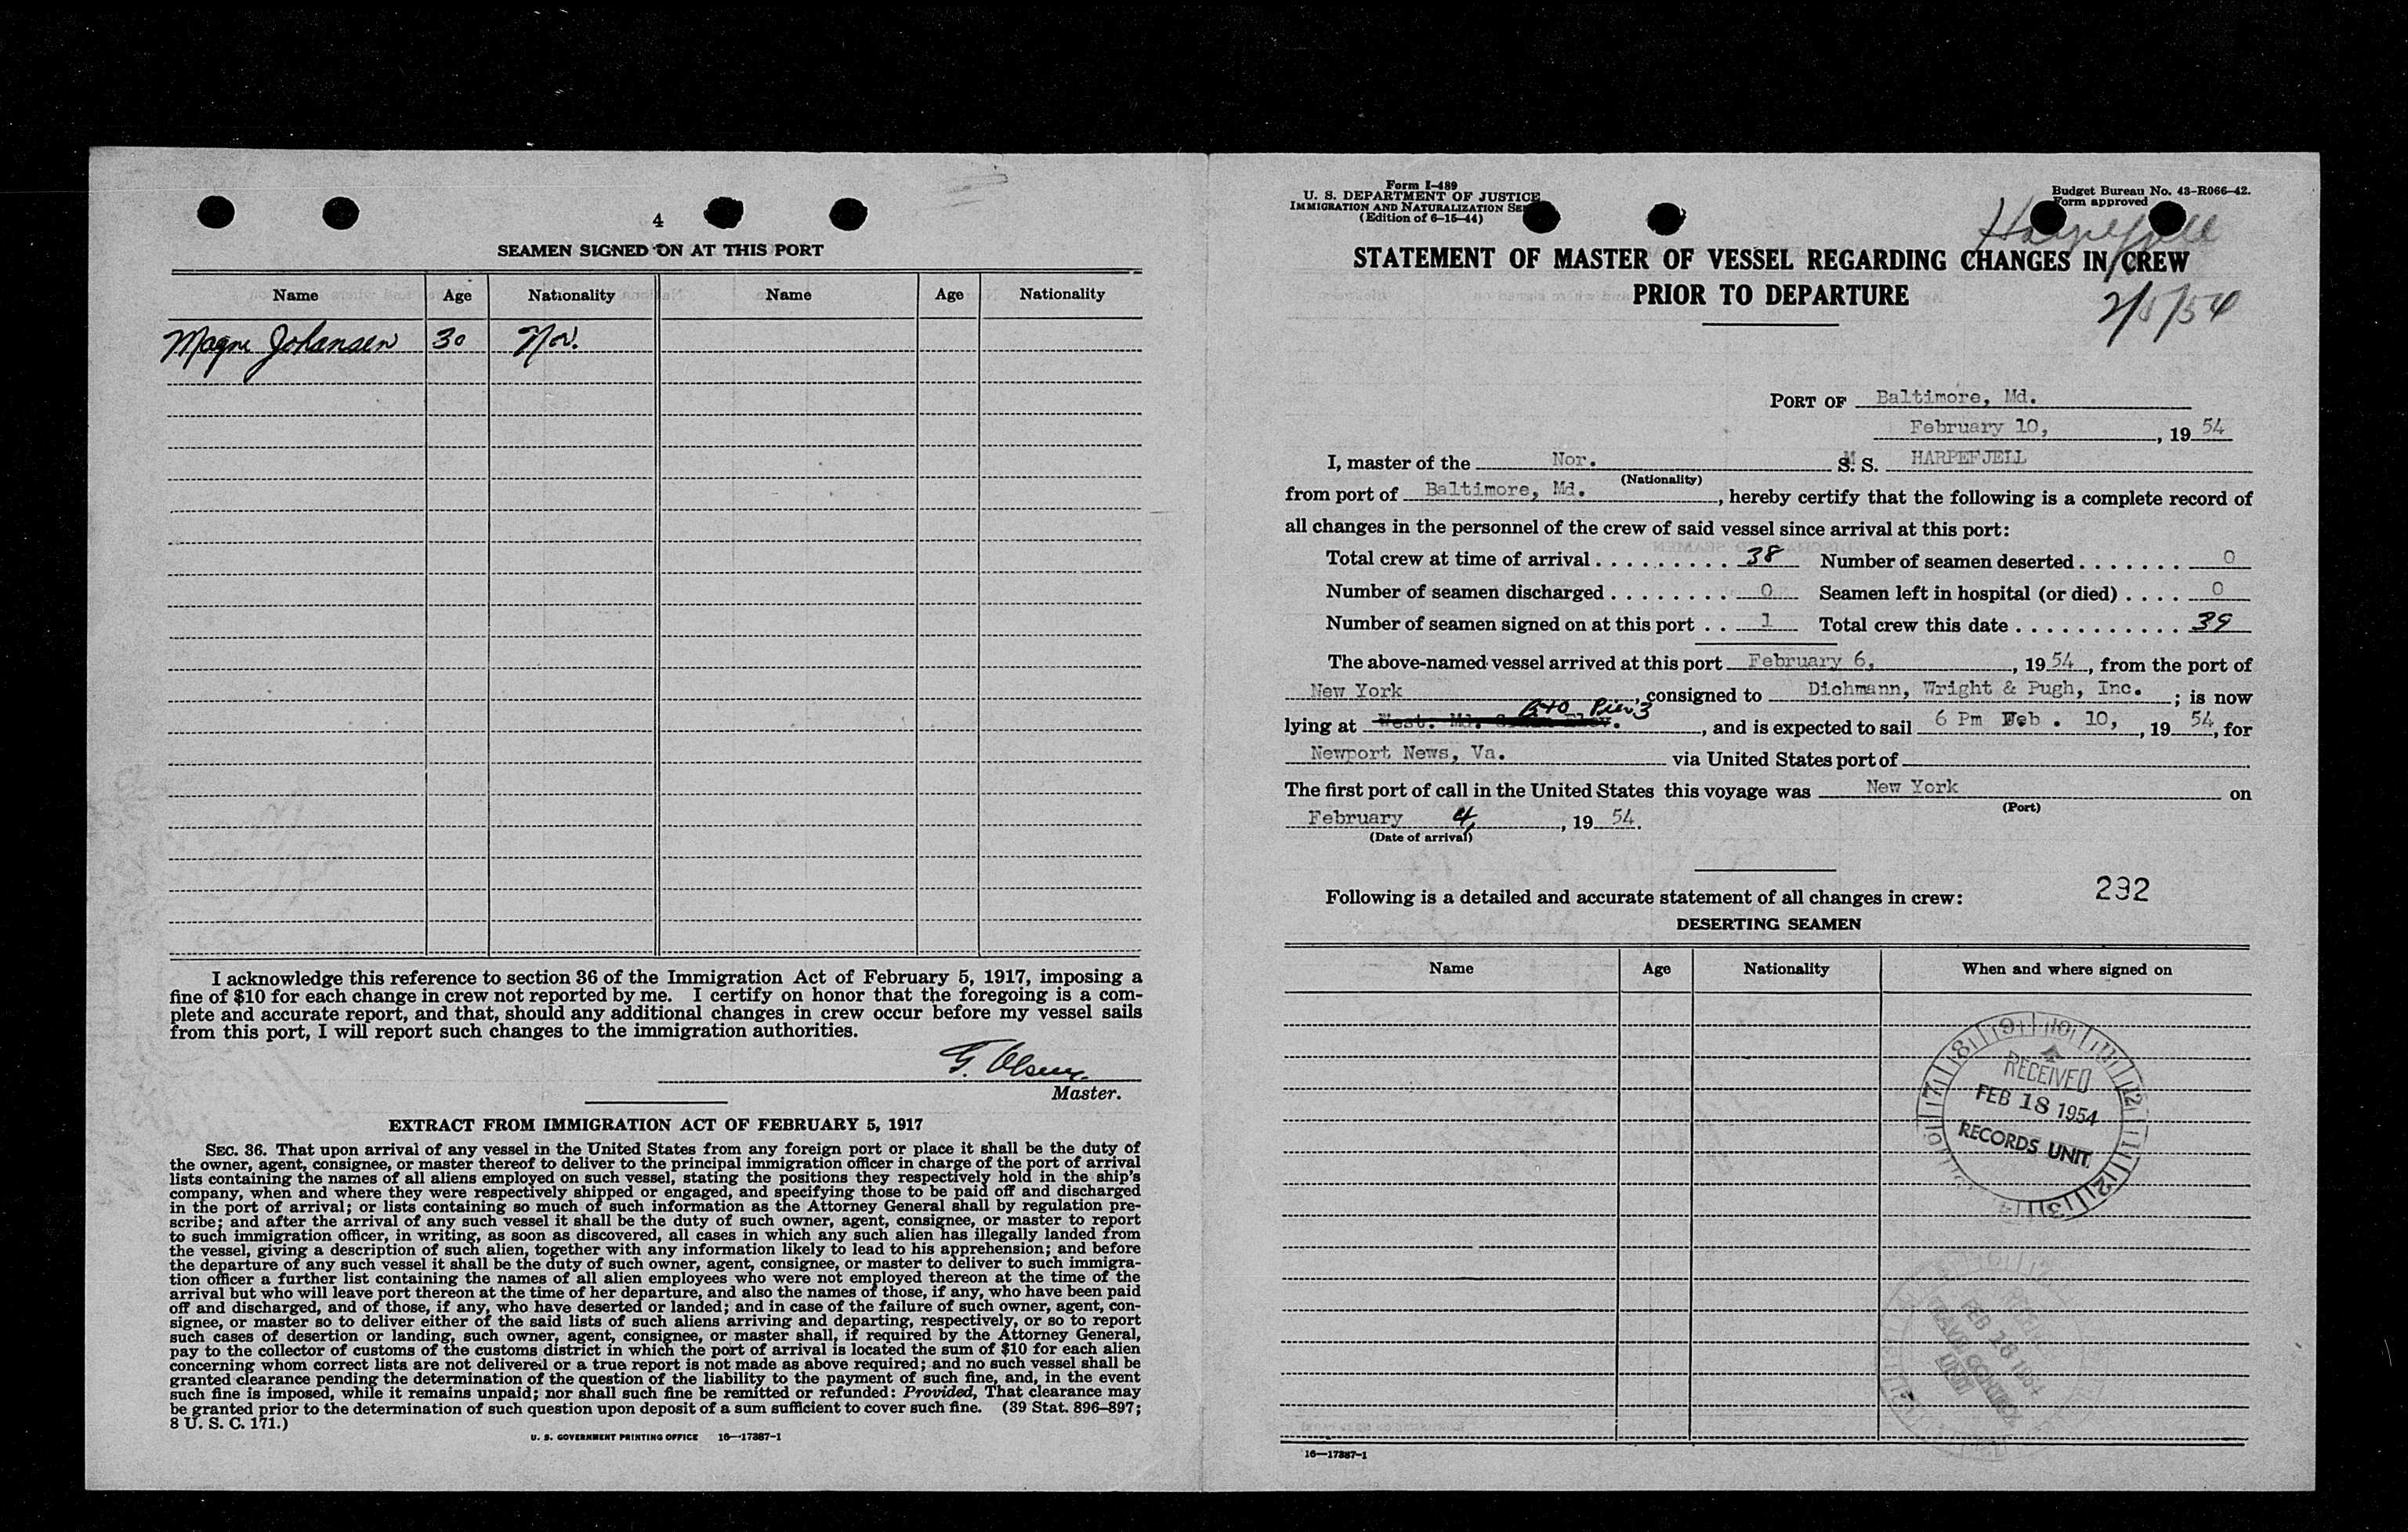 4
SEAMEN SIGNED ON AT THIS PORT
Name Age Nationality Name Age Nationality
Magne Johansen 30 Nor.
I acknowledge this reference to section 36 of the Immigration Act of February 5, 1917, imposing a
fine of $10 for each change in crew not reported by me. I certify on honor that the foregoing is a com-
plete and accurate report, and that, should any additional changes in crew occur before my vessel sails
from this port, I will report such changes to the immigration authorities.
G. Olsen
Master.
EXTRACT FROM IMMIGRATION ACT OF FEBRUARY 5, 1917
SEC. 36. That upon arrival of any vessel in the United States from any foreign port or place it shall be the duty of
the owner, agent, consignee, or master thereof to deliver to the principal immigration officer in charge of the port of arrival
lists containing the names of all aliens employed on such vessel, stating the positions they respectively hold in the ship's
company, when and where they were respectively shipped or engaged, and specifying those to be paid off and discharged
in the port of arrival; or lists containing so much of such information as the Attorney General shall by regulation pre-
scribe; and after the arrival of any such vessel it shall be the duty of such owner, agent, consignee, or master to report
to such immigration officer, in writing, as soon as discovered, all cases in which any such alien has illegally landed from
the vessel, giving a description of such alien, together with any information likely to lead to his apprehension; and before
the departure of any such vessel it shall be the duty of such owner, agent, consignee, or master to deliver to such immigra-
tion officer a further list containing the names of all alien employees who were not employed thereon at the time of the
arrival but who will leave port thereon at the time of her departure, and also the names of those, if any, who have been paid
off and discharged, and of those, if any, who have deserted or landed; and in case of the failure of such owner, agent, con-
signee, or master so to deliver either of the said lists of such aliens arriving and departing, respectively, or so to report
such cases of desertion or landing, such owner, agent, consignee, or master shall, if required by the Attorney General,
pay to the collector of customs of the customs district in which the port of arrival is located the sum of $10 for each alien
concerning whom correct lists are not delivered or a true report is not made as above required; and no such vessel shall be
granted clearance pending the determination of the question of the liability to the payment of such fine, and, in the event
such fine is imposed, while it remains unpaid; nor shall such fine be remitted or refunded: Provided, That clearance may
be granted prior to the determination of such question upon deposit of a sum sufficient to cover such fine. (39 Stat. 896–897;
8 U. S. C. 171.)
U. S. GOVERNMENT PRINTING OFFICE 16—17387-1
Form I-489
U. S. DEPARTMENT OF JUSTICE
IMMIGRATION AND NATURALIZATION
(Edition of 6-15-44)
Budget Bureau No. 43-R066-42.
Form approved
Harpefjell
2/5/54
STATEMENT OF MASTER OF VESSEL REGARDING CHANGES IN CREW
PRIOR TO DEPARTURE
PORT OF Baltimore, Md.
February 10, , 19 54
I, master of the Nor. M. S. HARPEFJELL
(Nationality)
from port of Baltimore, Md. , hereby certify that the following is a complete record of
all changes in the personnel of the crew of said vessel since arrival at this port:
Total crew at time of arrival . . . . . . . . . 38 Number of seamen deserted . . . . . . . 0
Number of seamen discharged . . . . . . . . 0 Seamen left in hospital (or died) . . . . 0
Number of seamen signed on at this port . . 1 Total crew this date . . . . . . . . . . . 39
The above-named vessel arrived at this port February 6, , 19 54 , from the port of
New York , consigned to Dichmann, Wright & Pugh, Inc. ; is now
lying at B+O Pier 3 , and is expected to sail 6 Pm Feb. 10, , 19 54 , for
Newport News, Va. via United States port of
The first port of call in the United States this voyage was New York on
(Port)
February 4, , 19 54.
(Date of arrival)
Following is a detailed and accurate statement of all changes in crew:
232
DESERTING SEAMEN
Name Age Nationality When and where signed on
RECEIVED
FEB 18 1954
RECORDS UNIT
16—17387-1